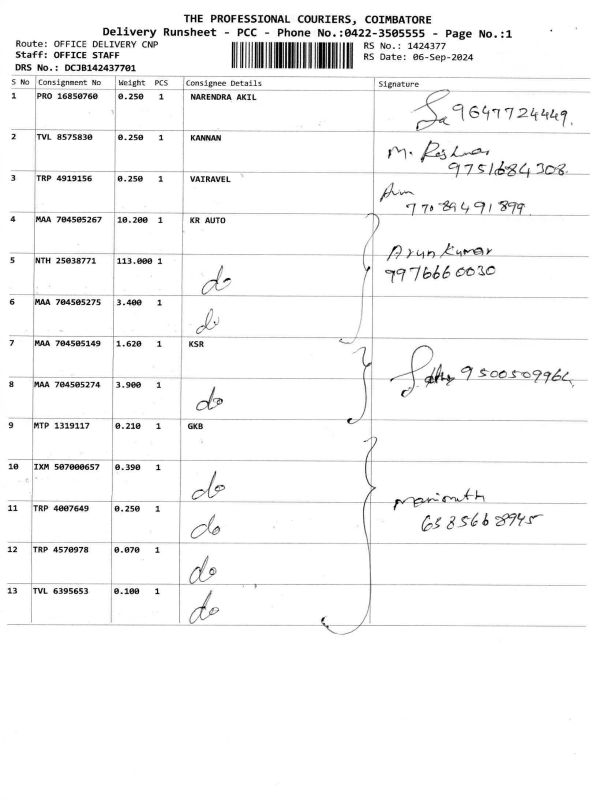 THE PROFESSIONAL COURIERS, COIMBATORE
Delivery Runsheet - PCC - Phone No.:0422-3505555 - Page No.:1
Route: OFFICE DELIVERY CNP
RS No.: 1424377
Staff: OFFICE STAFF
RS Date: 06-Sep-2024
DRS No.: DCJB142437701
S No Consignment No Weight PCS Consignee Details Signature
1 PRO 16850760 0.250 1 NARENDRA AKIL
9647724449.
2 TVL 8575830 0.250 1 KANNAN
M.
9751684308
3 TRP 4919156 0.250 1 VAIRAVEL
7708949 1899
4 MAA 704505267 10.200 1 KR AUTO
Arun Kumar
5 NTH 25038771 113.000 1 do
9976660030
6 MAA 704505275 3.400 1 do
7 MAA 704505149 1.620 1 KSR
9500509964
8 MAA 704505274 3.900 1 do
9 MTP 1319117 0.210 1 GKB
10 IXM 507000657 0.390 1 do
11 TRP 4007649 0.250 1 do
6385668945
12 TRP 4570978 0.070 1 do
13 TVL 6395653 0.100 1 do